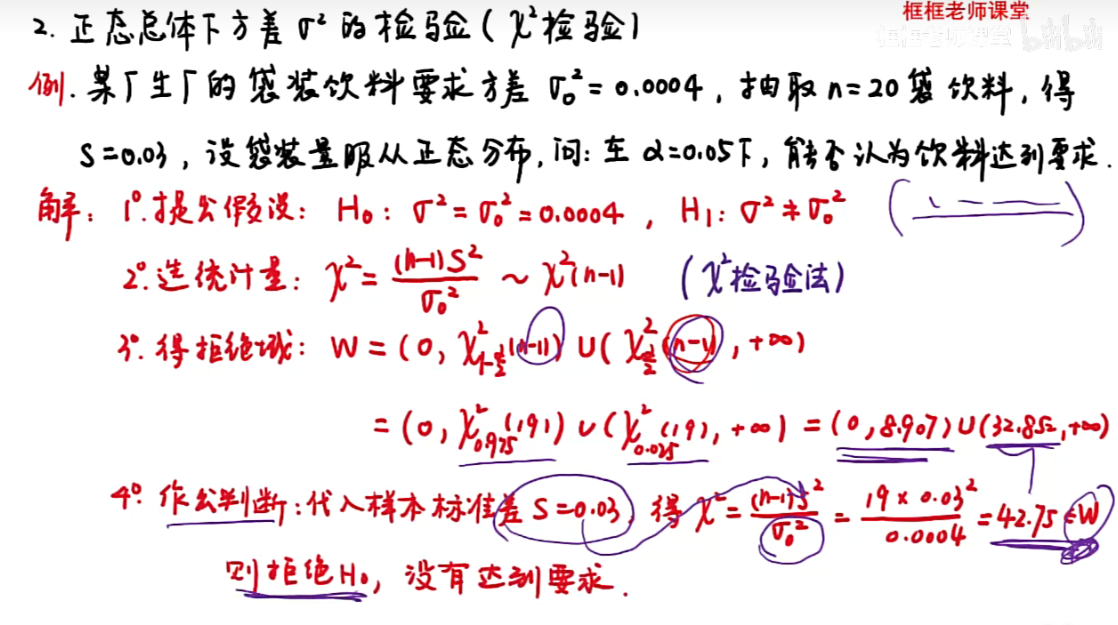 框框老师课堂
框框老师课堂 bilibili
2. 正态总体下方差 σ² 的检验(χ²检验)
例. 某厂生厂的袋装饮料要求方差 σ₀² = 0.0004, 抽取 n=20 袋饮料, 得
S=0.03, 设袋装量服从正态分布, 问: 在 α=0.05下, 能否认为饮料达到要求.
解: 1°. 提出假设: H₀: σ² = σ₀² = 0.0004, H₁: σ² ≠ σ₀²
2°. 选统计量: χ² = (n-1)S²/σ₀² ~ χ²(n-1) (χ²检验法)
3°. 得拒绝域: W = (0, χ²_{1-α/2}(n-1)) ∪ (χ²_{α/2}(n-1), +∞)
= (0, χ²_{0.975}(19)) ∪ (χ²_{0.025}(19), +∞) = (0, 8.907) ∪ (32.852, +∞)
4°. 作出判断: 代入样本标准差 S=0.03, 得 χ² = (n-1)S²/σ₀² = 19×0.03²/0.0004 = 42.75 ∈ W
则拒绝H₀, 没有达到要求.